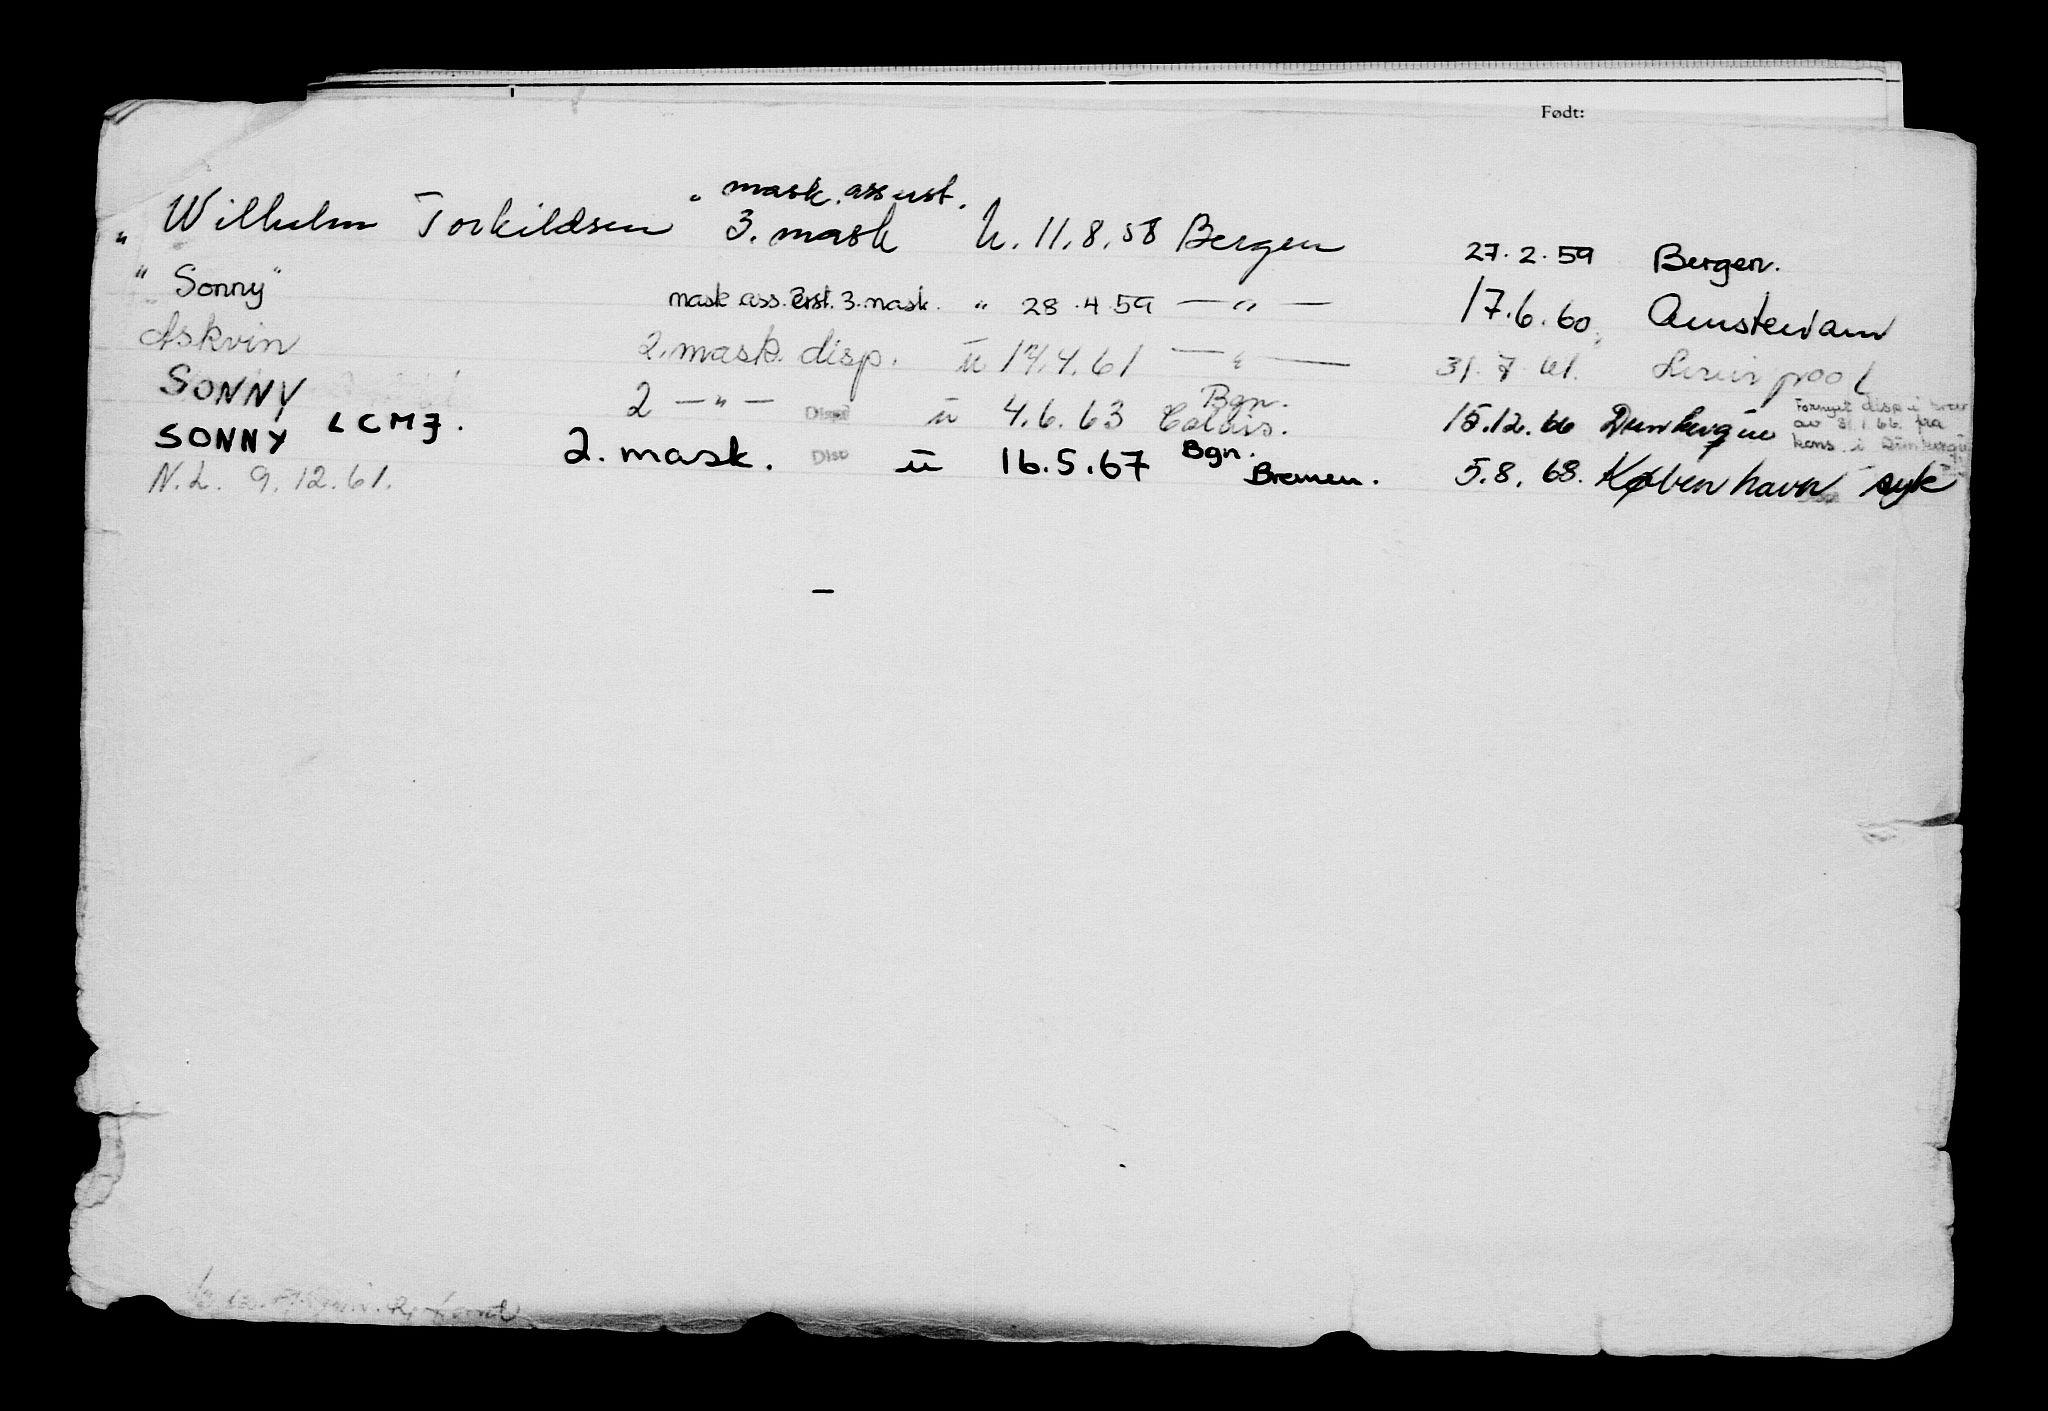 Født:
" mask. assist.
" Wilhelm Torkildsen 3. mask h. 11.8.58 Bergen 27.2.59 Bergen.
" Sonny" mask ass. Erst. 3. mask. " 28.4.59 — " — 17.6.60 Amsterdam
Askvin 2. mask. disp. ü 17.4.61 — " — 31.7.61. Liverpool
SONNY 2 — " — Disp ü 4.6.63 Bgn. Calais. 15.12.66 Dunkerque Fornyet disp i brev
av 31.1.66. fra
kons. i Dunkerque
SONNY LCMJ. 2. mask. Disp ü 16.5.67 Bgn. Bremen. 5.8.68. København syk
N.L. 9.12.61.